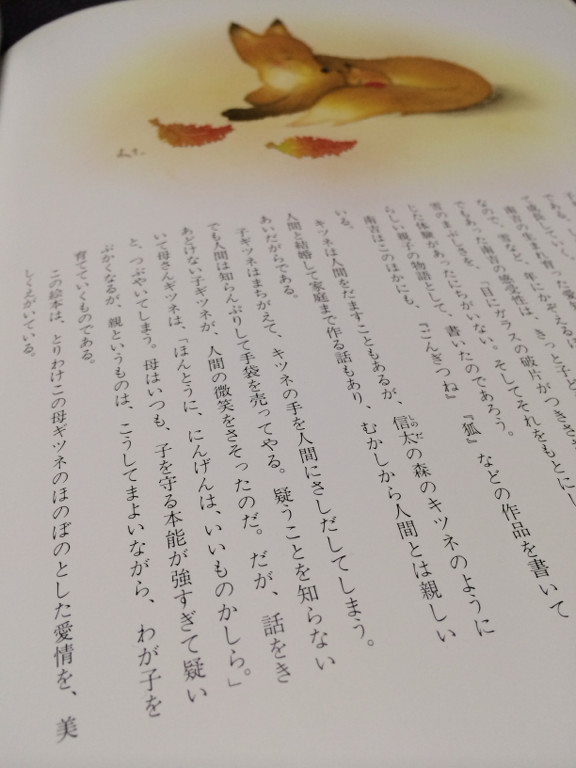 て成長していく。
南吉の生まれ育った愛知
なので、雪など、年にかぞえるほ
でもあった南吉の感受性は、きっと子ど
雪のまぶしさを、「目にガラスの破片がつきささ
じた体験があったにちがいない。そしてそれをもとにし
らしい親子の物語として、書いたのであろう。
南吉はこのほかにも、『ごんぎつね』『狐』などの作品を書いて
いる。
キツネは人間をだますこともあるが、信太の森のキツネのように
人間と結婚して家庭まで作る話もあり、むかしから人間とは親しい
あいだがらである。
子ギツネはまちがえて、キツネの手を人間にさしだしてしまう。
でも人間は知らんぷりして手袋を売ってやる。疑うことを知らない
あどけない子ギツネが、人間の微笑をさそったのだ。だが、話をき
いて母さんギツネは、「ほんとうに、にんげんは、いいものかしら。」
と、つぶやいてしまう。母はいつも、子を守る本能が強すぎて疑い
ぶかくなるが、親というものは、こうしてまよいながら、わが子を
育てていくものである。
この絵本は、とりわけこの母ギツネのほのぼのとした愛情を、美
しくえがいている。